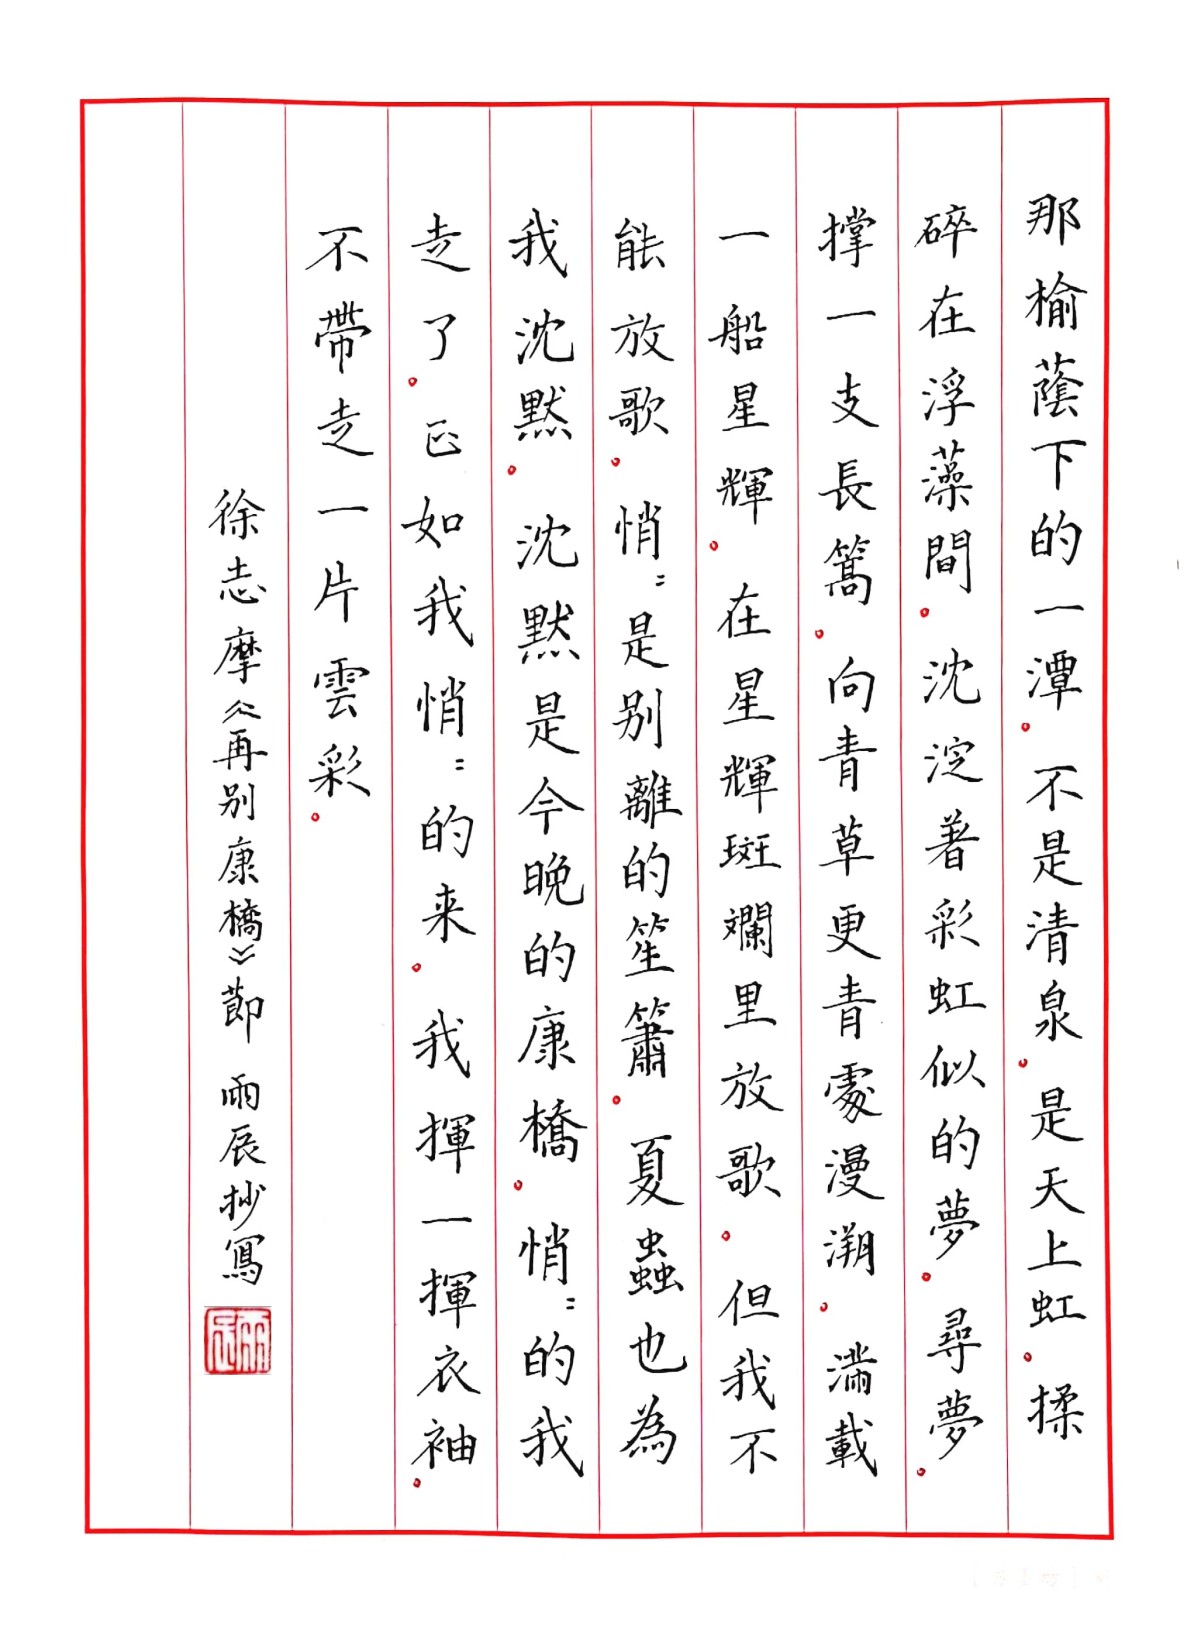 那榆蔭下的一潭。不是清泉。是天上虹。揉
碎在浮藻間。沈淀著彩虹似的夢。尋夢。
撑一支長篙。向青草更青處漫溯。滿載
一船星輝。在星輝斑斕里放歌。但我不
能放歌。悄〻是别離的笙簫。夏蟲也為
我沈默。沈默是今晚的康橋。悄〻的我
走了。正如我悄〻的来。我揮一揮衣袖。
不帶走一片雲彩。
徐志摩《再别康橋》節 雨辰抄寫
雨辰